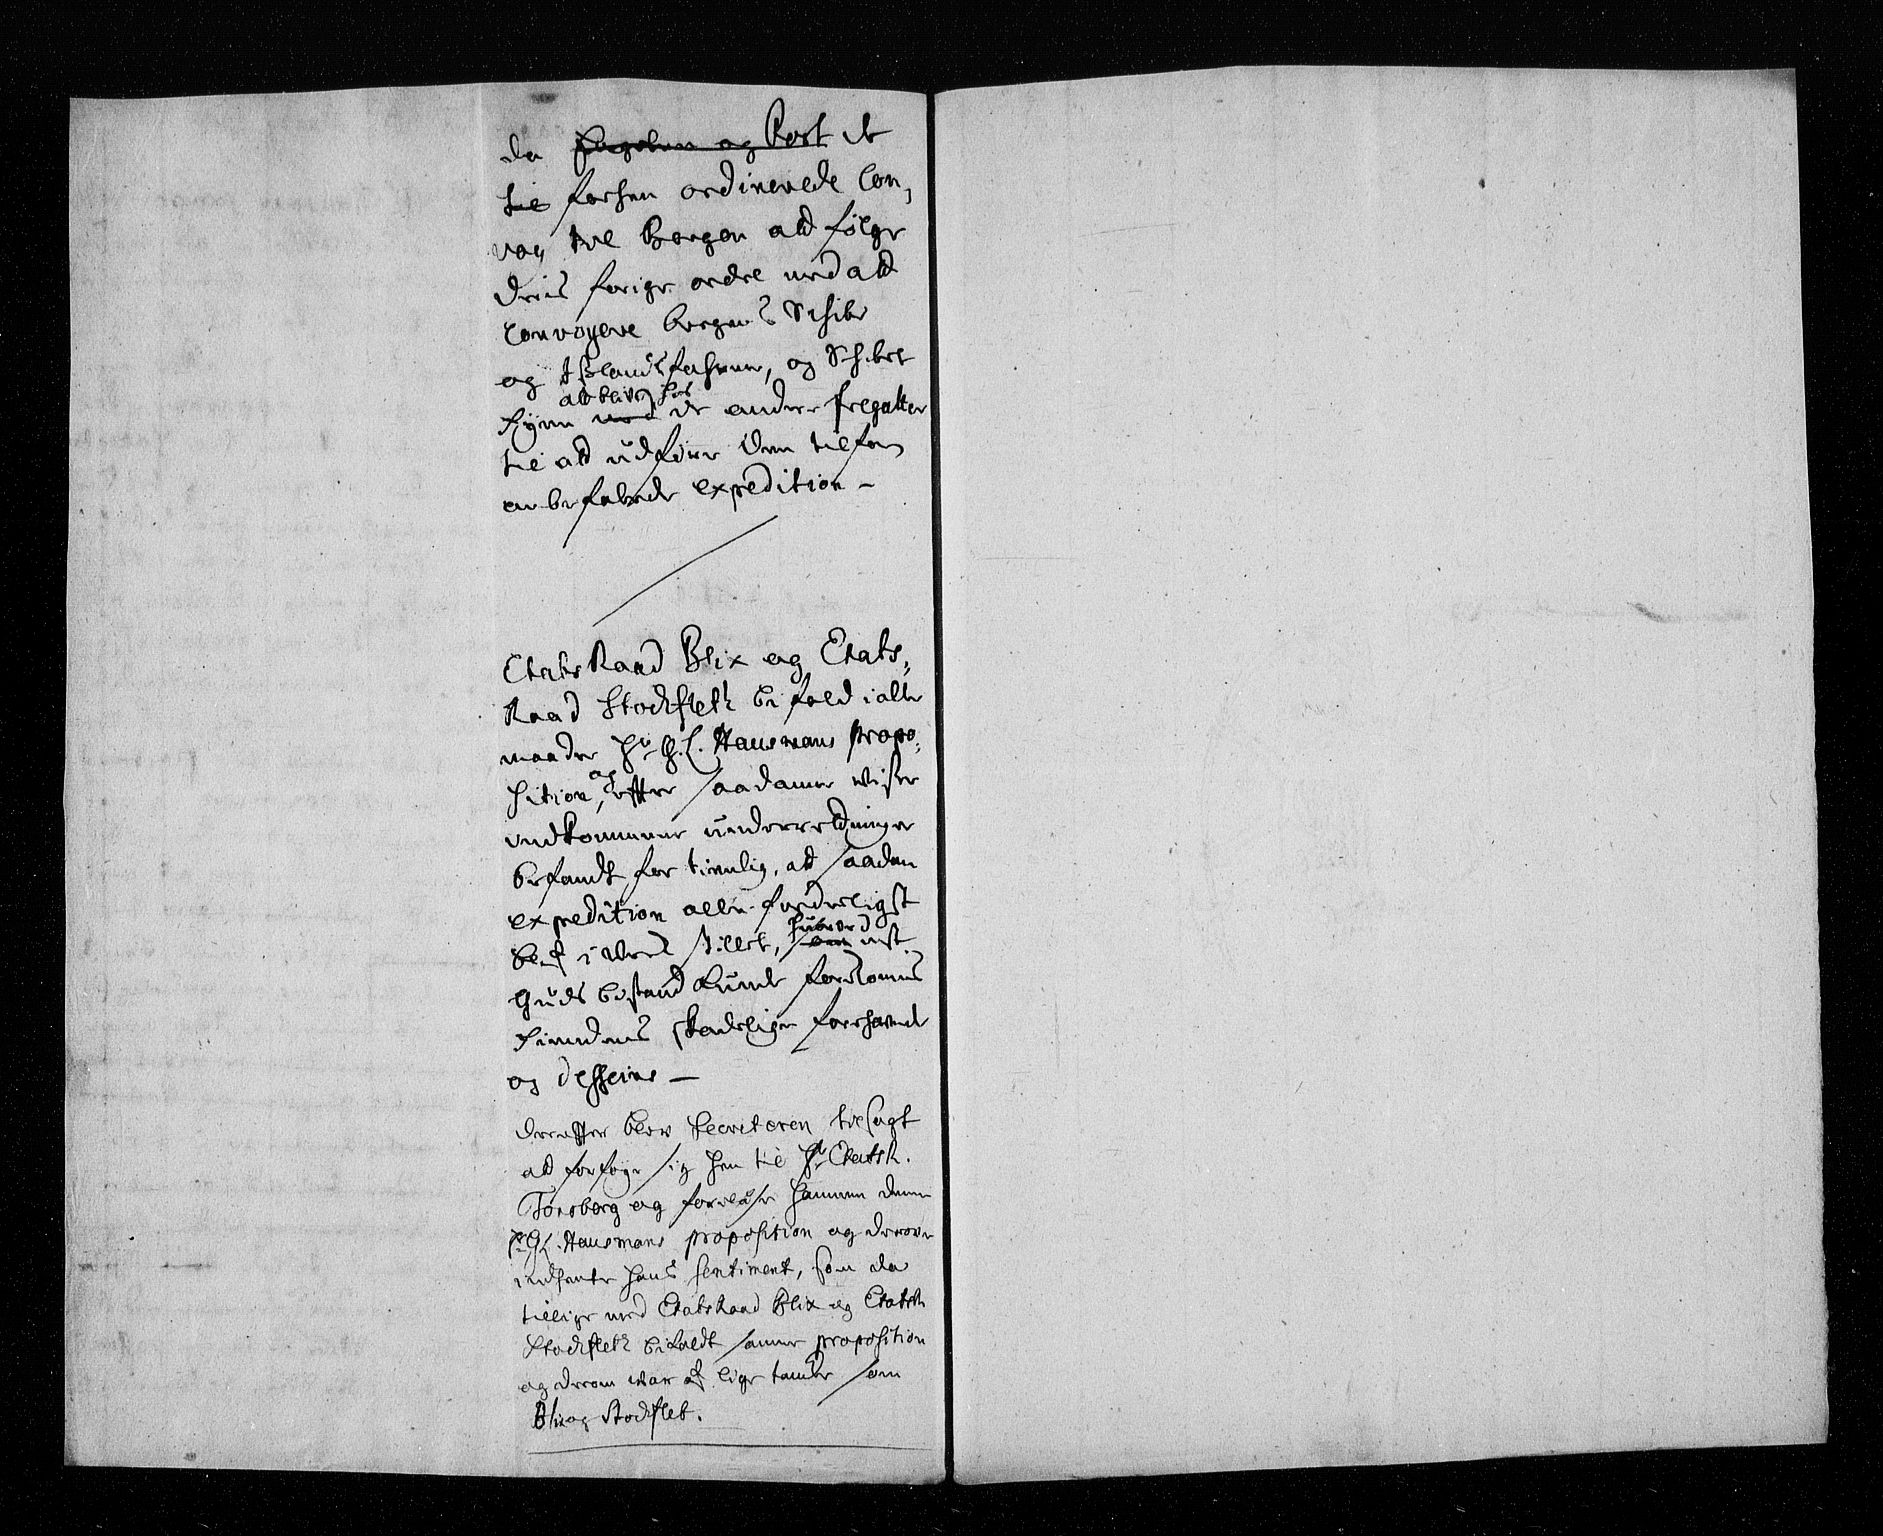 da og Rost
til forhen ordinerede Con,
voy til Bergen att følge
deris forige ordre med att
Convoyere bergens Schibe
og Ißlandsfahrere, og Schibet
att blive hos
med de andre fregatter
til att udføre den tilforn
anbefalede expedition –
Etats Raad Blix og Etats,
Raad Stockfleth bifald i alle
maader Hr G. L. Hausmans propo,
sition, og efter saadanne wisse
indkomne underretninger
befandt for tienlig, att saadan
expedition aller forderligst
blef i Verck stillet, hvorved nest
Guds bistand kunde forekomis
Fiendens skadelige forehavende
og desseins –
derefter blev Secreteren tilsagt
att forføye sig hen til Hr Etatsr.
Tonsberg og forrelæse hannem denne
Hr G L. Hausmans proposition og derover
indhente hans sentiment, som da
tillige med Etats Raad Blix og Etatsr
Stockfleth bifaldt samme proposition
og derom war af lige tancke som
Blix og Stockflet.